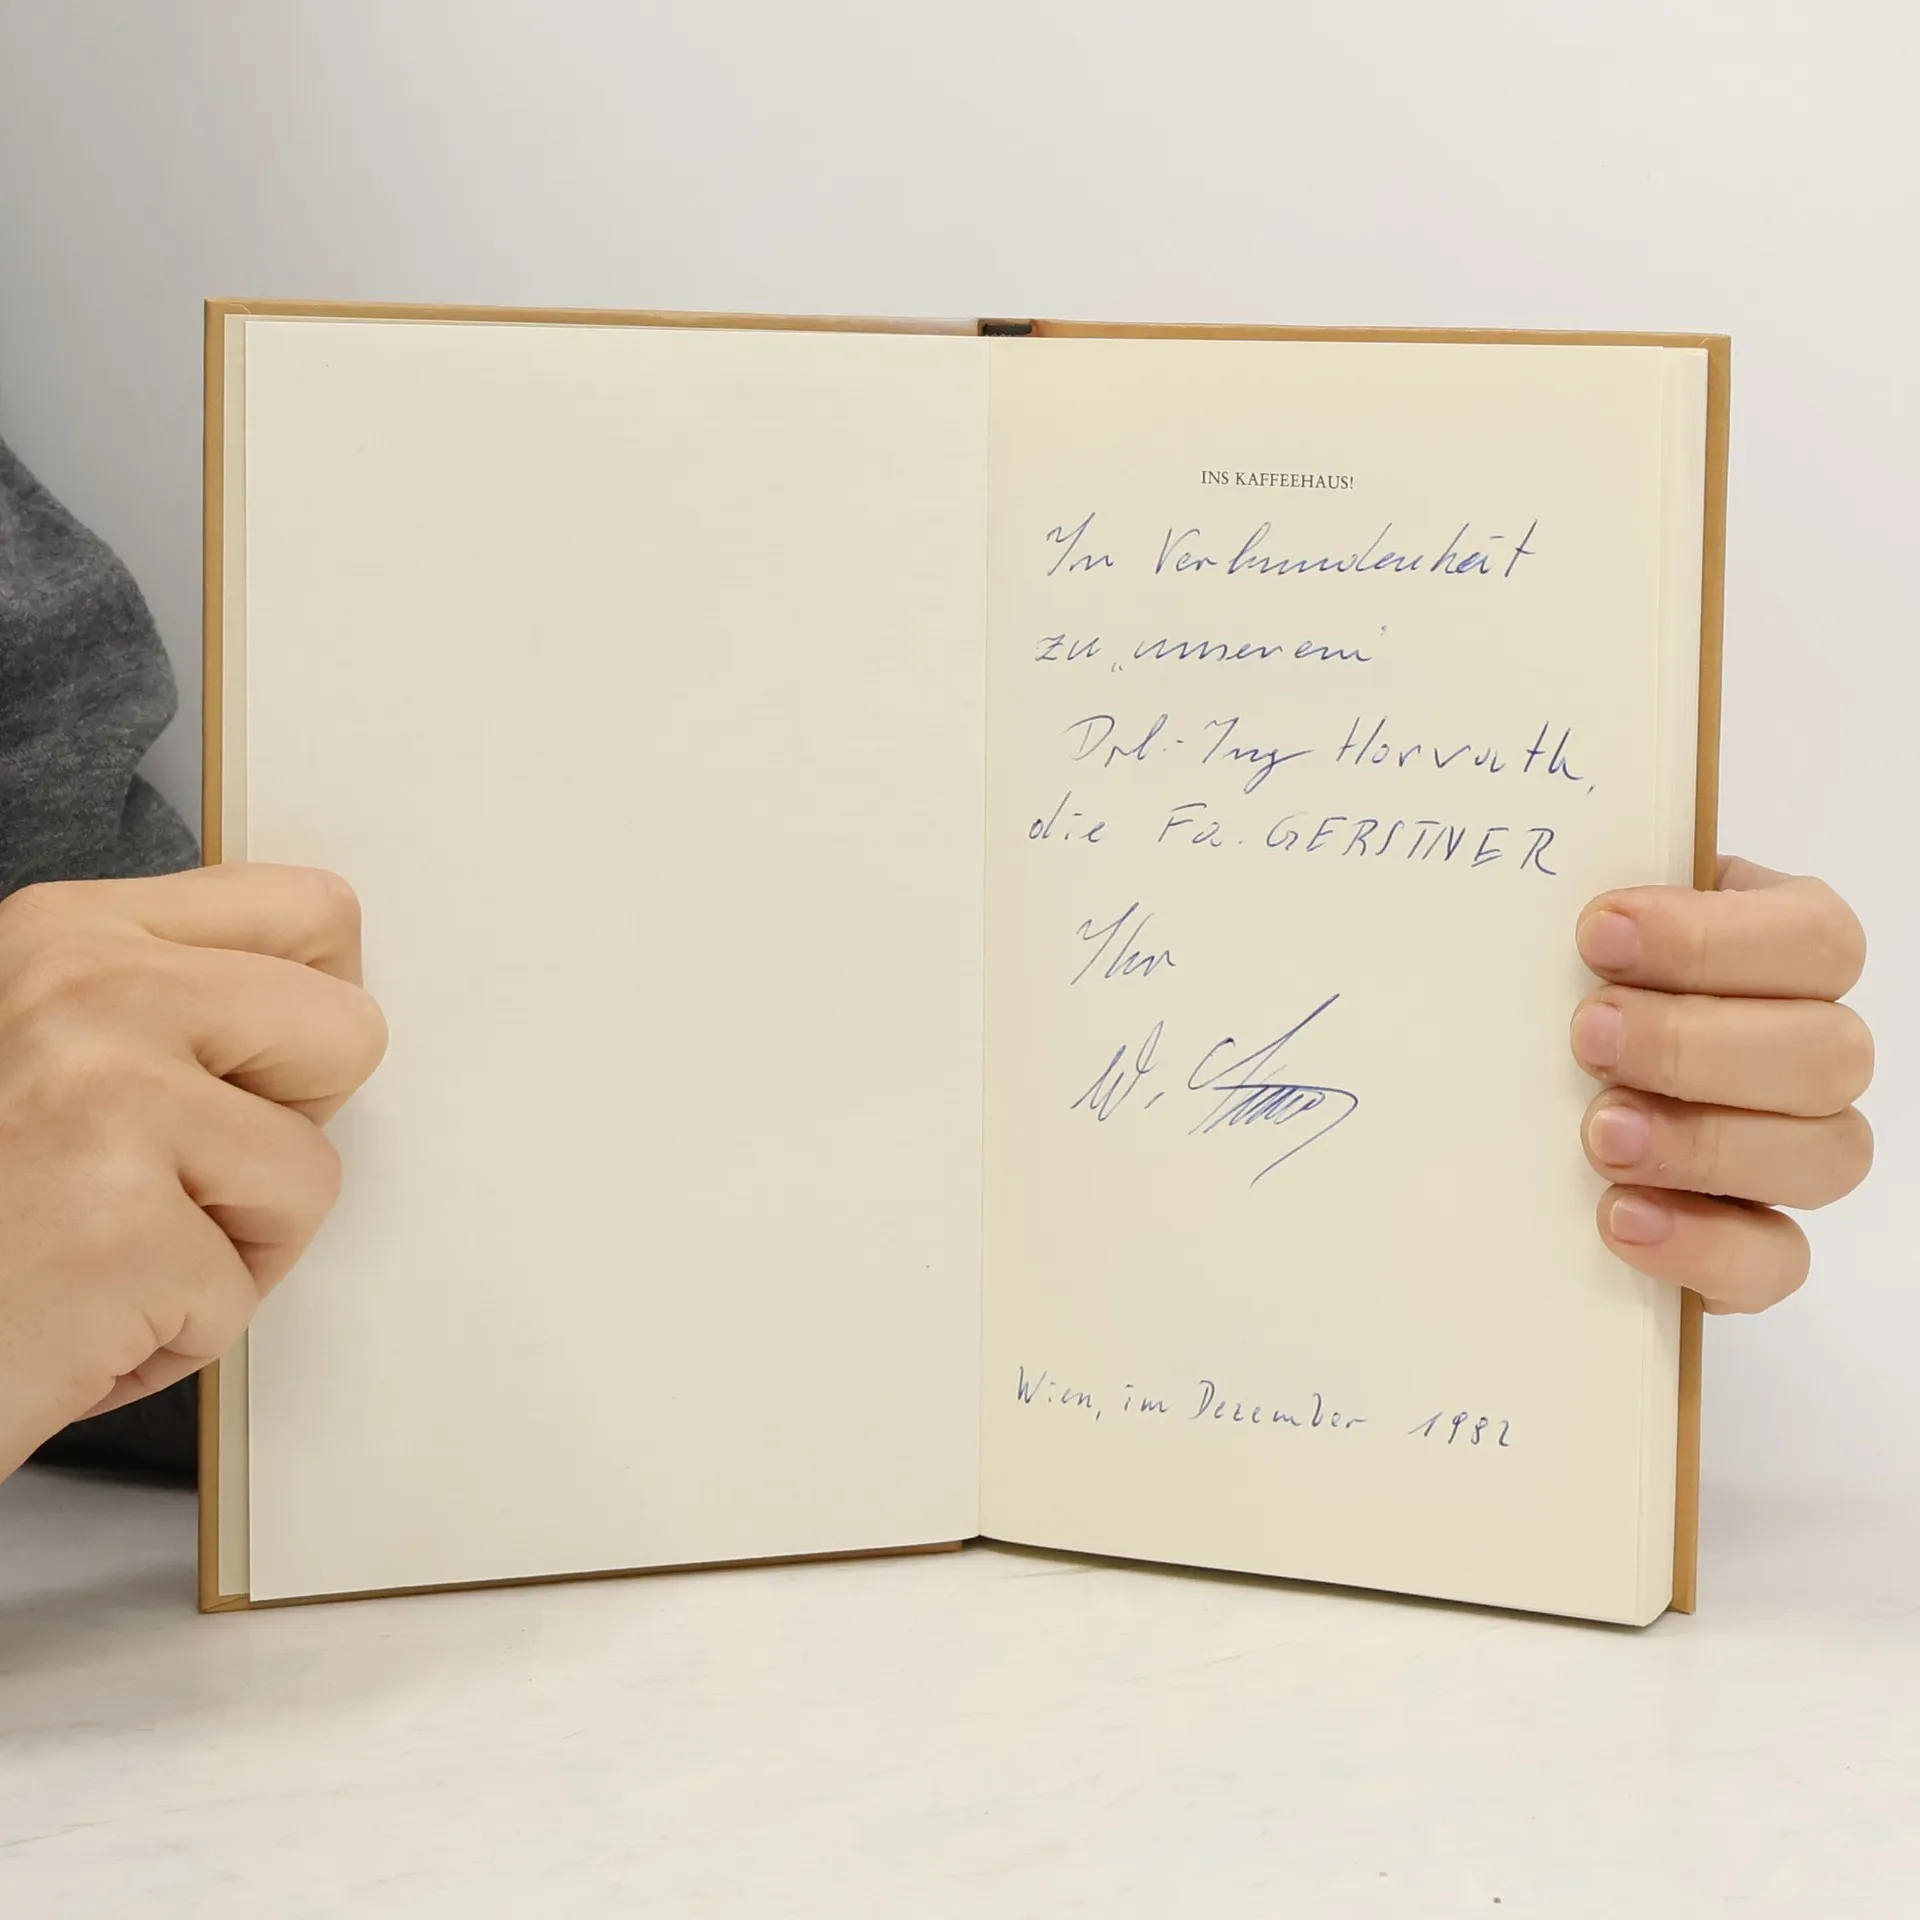 INS KAFFEEHAUS!
In Verbundenheit
zu „unserem"
Dpl.-Ing Horvath,
die Fa. GERSTNER
Ihr
W.
Wien, im Dezember 1982